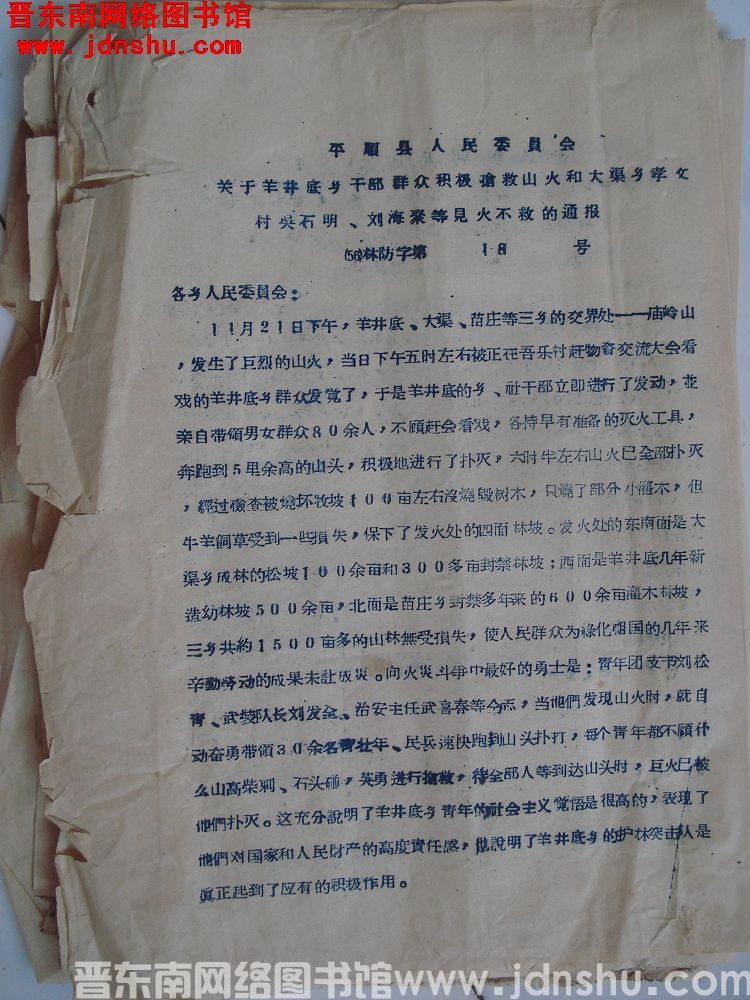 晋东南网络图书馆
www.jdnshu.com
平順县人民委員会
关于羊井底乡干部群众积极搶救山火和大渠乡孝文
村吳石明、刘海聚等見火不救的通报
(56)林防字第 18 号
各乡人民委員会：
11月21日下午，羊井底、大渠、苗庄等三乡的交界处——庙岭山
，发生了巨烈的山火，当日下午五时左右被正在吾乐村赶物資交流大会看
戏的羊井底乡群众发覚了，于是羊井底的乡、社干部立即進行了发动，並
亲自带領男女群众80余人，不顾赶会看戏，各持早有准备的灭火工具，
奔跑到5里余高的山头，积极地進行了扑灭，六时半左右山火已全部扑灭
，經过檢查被燒坏牧坡100亩左右沒燒毀树木，只燒了部分小灌木，但
牛羊飼草受到一些損失，保下了发火处的四面林坡。发火处的东南面是大
渠乡成林的松坡100余亩和300多亩封禁林坡；西面是羊井底几年新
造幼林坡500余亩，北面是苗庄乡封禁多年来的600余亩灌木林坡，
三乡共約1500亩多的山林無受損失，使人民群众为綠化祖国的几年来
辛勤劳动的成果未訨成災。向火災斗爭中最好的勇士是：青年团支書刘松
青、武装队长刘发金、治安主任武喜春等同志，当他們发現山火时，就自
动奋勇带領30余名青壮年、民兵速快跑到山头扑打，每个青年都不顾什
么山高柴刺、石头碰，英勇進行搶救，待全部人等到达山头时，巨火已被
他們扑灭。这充分說明了羊井底乡青年的社会主义覚悟是很高的，表現了
他們对国家和人民財产的高度責任感，也說明了羊井底乡的护林突击人是
眞正起到了应有的积极作用。
晋东南网络图书馆www.jdnshu.com